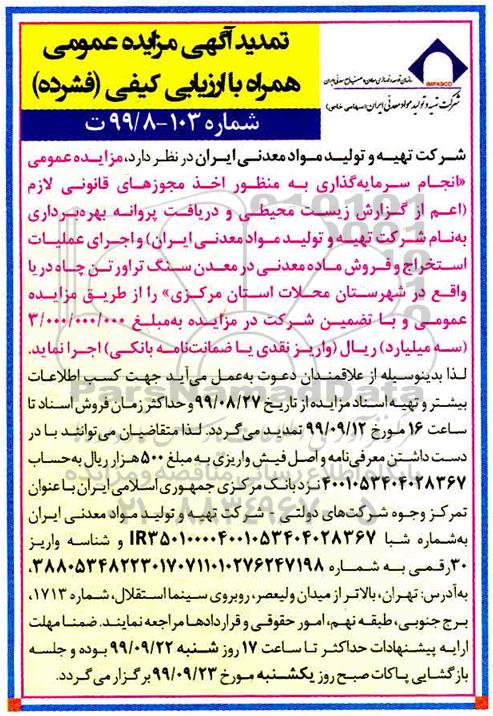 تمدید آگهی مزایده عمومی
همراه با ارزیابی کیفی (فشرده)
شماره ۱۰۳-۹۹/۸ ت
IMPASCO
سازمان توسعه و نوسازی معادن و صنایع معدنی ایران
شرکت تهیه و تولید مواد معدنی ایران (سهامی خاص)
شرکت تهیه و تولید مواد معدنی ایران در نظر دارد، مزایده عمومی
«انجام سرمایه‌گذاری به منظور اخذ مجوزهای قانونی لازم
(اعم از گزارش زیست محیطی و دریافت پروانه بهره‌برداری
به‌نام شرکت تهیه و تولید مواد معدنی ایران) و اجرای عملیات
استخراج و فروش ماده معدنی در معدن سنگ تراورتن چاه دریا
واقع در شهرستان محلات استان مرکزی» را از طریق مزایده
عمومی و با تضمین شرکت در مزایده به‌مبلغ ۳/۰۰۰/۰۰۰/۰۰۰
(سه میلیارد) ریال (واریز نقدی یا ضمانت‌نامه بانکی) اجرا نماید.
لذا بدینوسیله از علاقمندان دعوت به‌عمل می‌آید جهت کسب اطلاعات
بیشتر و تهیه اسناد مزایده از تاریخ ۹۹/۰۸/۲۷ و حداکثر زمان فروش اسناد تا
ساعت ۱۶ مورخ ۹۹/۰۹/۱۲ تمدید می‌گردد. لذا متقاضیان می‌توانند با در
دست داشتن معرفی‌نامه و اصل فیش واریزی به مبلغ ۵۰۰ هزار ریال به‌حساب
۴۰۰۱۰۵۳۴۰۴۰۲۸۳۶۷ نزد بانک مرکزی جمهوری اسلامی ایران با عنوان
تمرکز وجوه شرکت‌های دولتی - شرکت تهیه و تولید مواد معدنی ایران
به‌شماره شبا IR۳۵۰۱۰۰۰۰۴۰۰۱۰۵۳۴۰۴۰۲۸۳۶۷ و شناسه واریز
۳۰رقمی به شماره ۳۸۸۰۵۳۴۸۲۲۳۰۱۷۰۷۱۱۰۱۰۲۷۶۲۴۷۱۹۸،
به‌آدرس: تهران، بالاتر از میدان ولیعصر، روبروی سینما استقلال، شماره ۱۷۱۳،
برج جنوبی، طبقه نهم، امور حقوقی و قراردادها مراجعه نمایند. ضمنا مهلت
ارایه پیشنهادات حداکثر تا ساعت ۱۷ روز شنبه ۹۹/۰۹/۲۲ بوده و جلسه
بازگشایی پاکات صبح روز یکشنبه مورخ ۹۹/۰۹/۲۳ برگزار می‌گردد.
ParsNamadData
۰۲۱-۸۸۳۴۹۶۷۰-۵